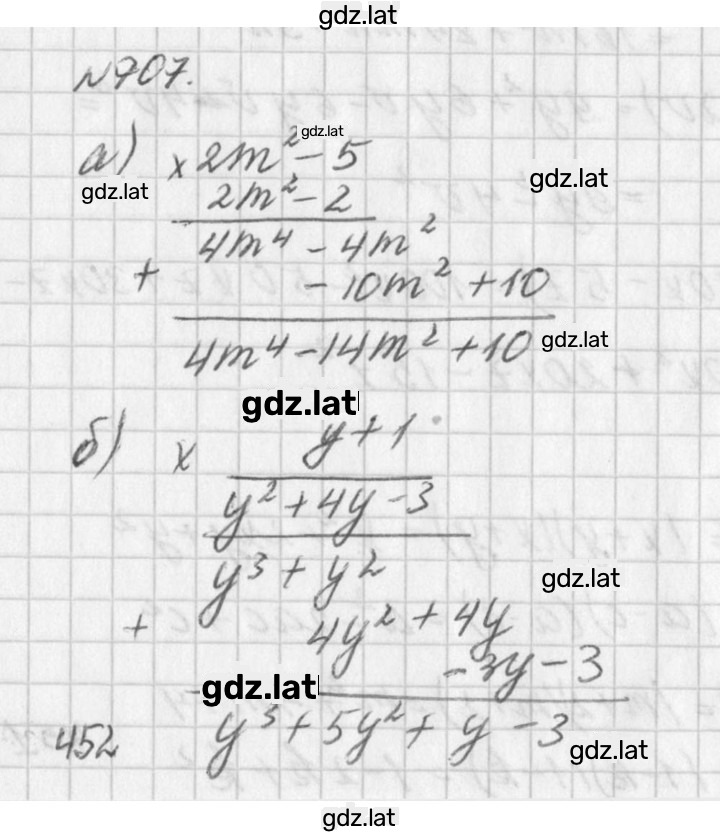 gdz.lat
№707.
gdz.lat
а) × 2m² - 5
gdz.lat
gdz.lat
2m² - 2
4m⁴ - 4m²
+ - 10m² + 10
4m⁴ - 14m² + 10
gdz.lat
gdz.lat
б) × y + 1
y² + 4y - 3
y³ + y²
gdz.lat
+ 4y² + 4y
- 3y - 3
gdz.lat
y³ + 5y² + y - 3
452
gdz.lat
gdz.lat